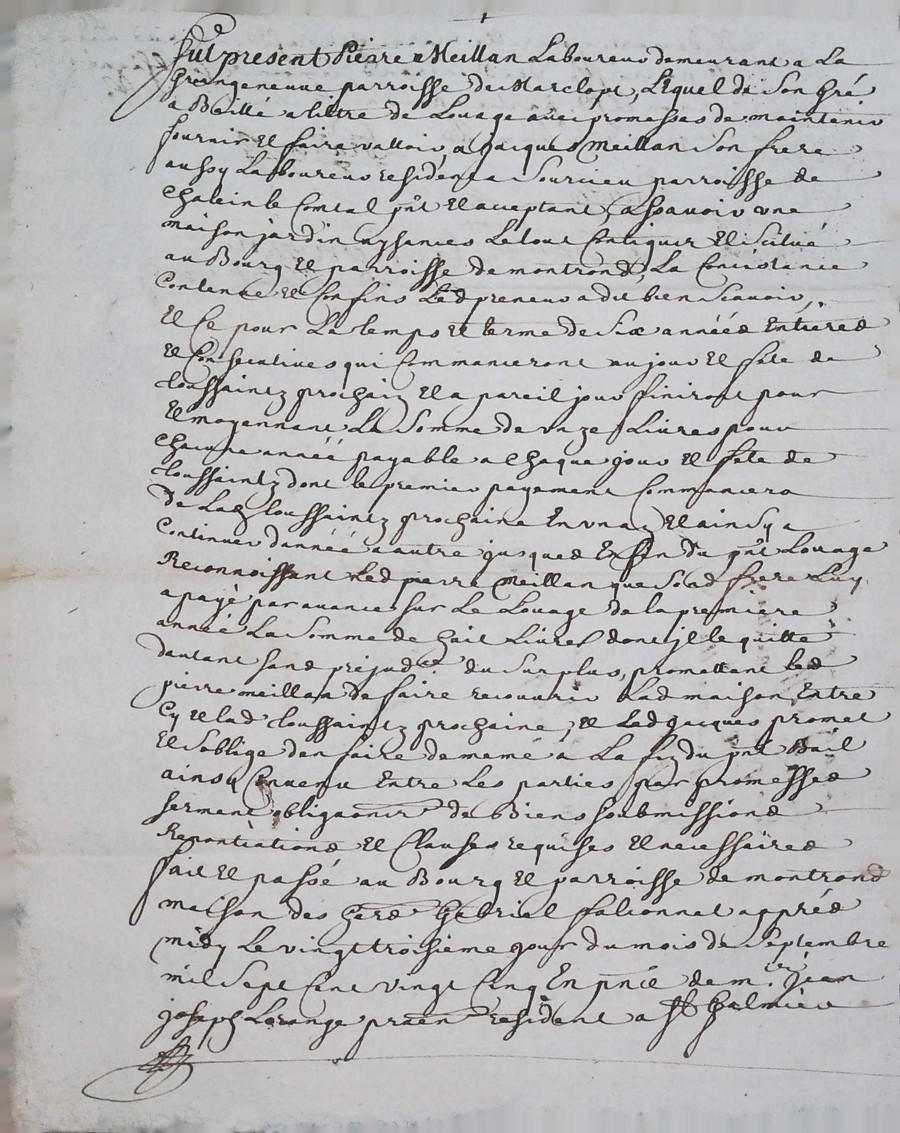 fut present Pierre Meillan Laboureur demeurant a La
Grangeneuve parroisse de Marclopt, Lequel de Son Gré
a Baillé a tiltre de Louage avec promesses de maintenir
fournir Et faire valloir, a Jacques Meillan Son frere
aussy Laboureur residant a Sourcieu parroisse de
Chalein le Comtal pnt Et acceptant, a Scavoir une
maison jardin aysances Le tout Contiguer Et Scitué
au Bourg Et parroisse de montrond, La Concistance
Contenue Et Confins Led preneur a dit bien Scavoir,
Et Ce pour La temps Et terme de Six années Entieres
Et Consecutives qui Commanceront au jour Et fete de
toussaintz prochain Et a pareil jour finiront pour
Et moyennant La Somme de unze Livres pour
Chacune année payable a Chaque jour Et fete de
toussaintz dont le premier payement Commancera
de Lad toussaintz prochaine En un an Et ainsy a
Continuer d'année a autre jusques En fin du pnt Louage
Reconnoissant Led pierre Meillan que Sond frere Luy
a payé par avance Sur Le Louage de la premiere
année La Somme de huit Livres dont jl le quitte
dautant sans prejudce du Surplus, promettant led
pierre meillan de faire recouvrir Lad maison Entre
Cy Et lad toussaintz prochaine, Et Led Jacques promet
Et Soblige den faire de meme a La fin du pnt Bail
ainsy Convenu Entre Les parties par promesses
serment obligaonr de Biens Soubmissions
Renontiations Et Clauses requises Et necessaires
fait Et passé au Bourg Et parroisse de montrond
maison des hers Gabriel falionnet apprés
midy Le vingt troisieme jour du mois de Septembre
mil Sept Cent vingt Cinq En pnce de mr jean
joseph Lorange praen resident a St Galmier